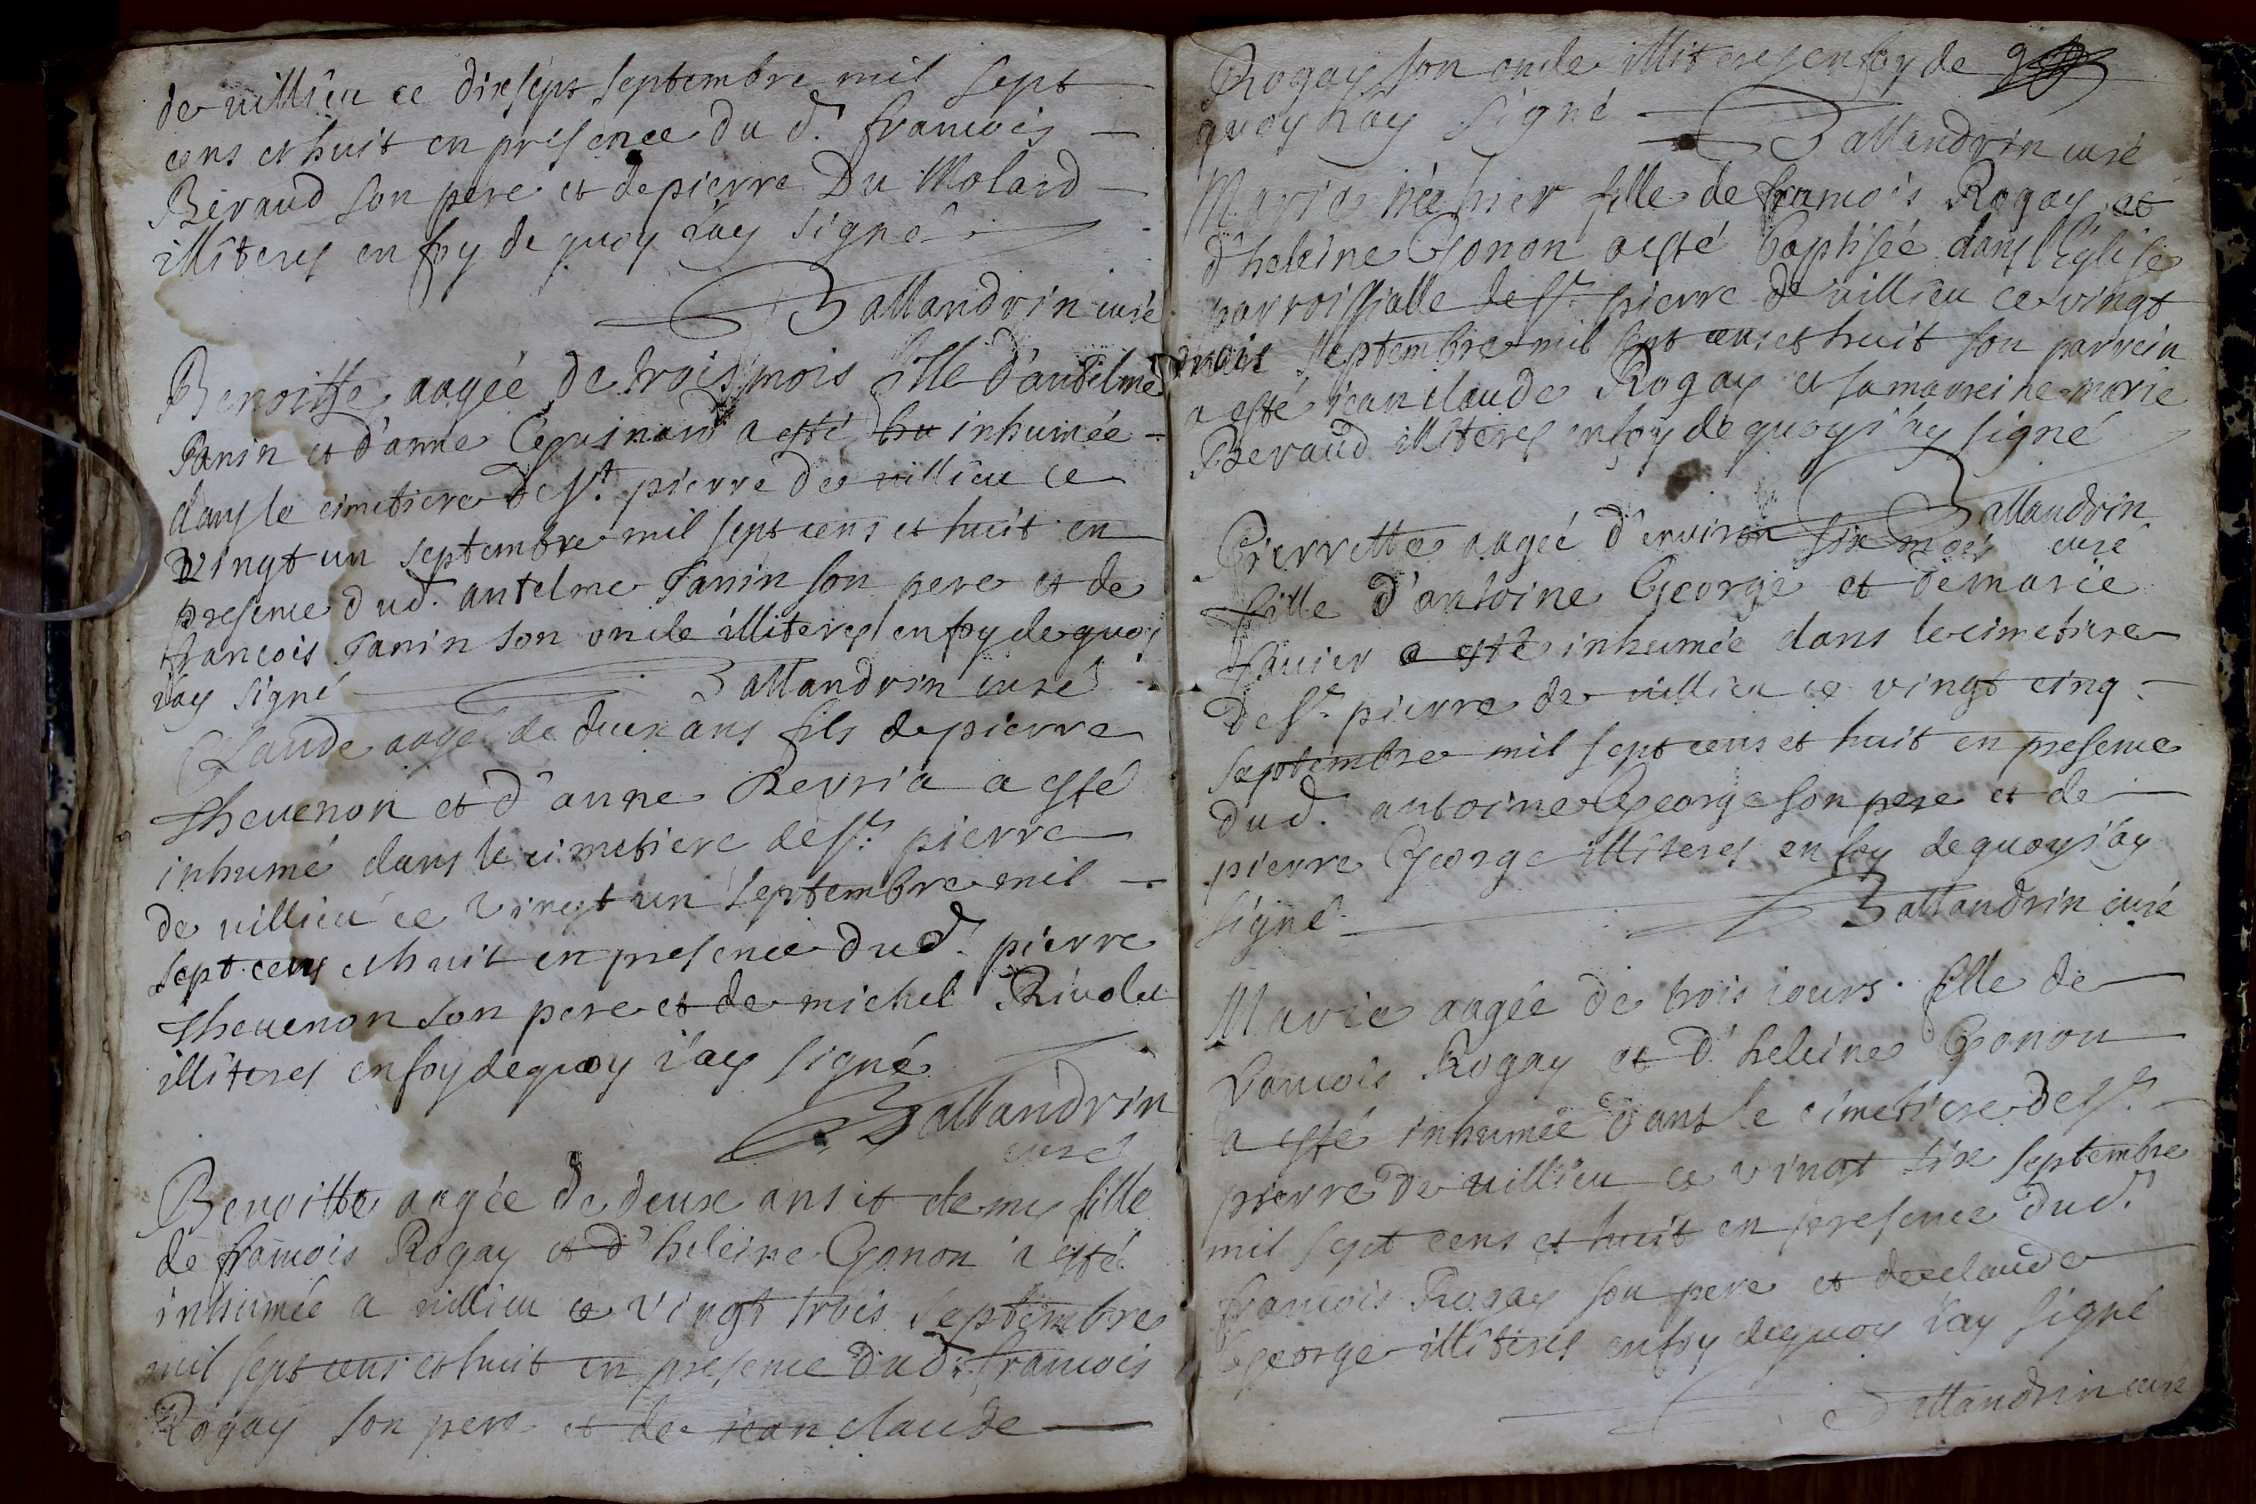 de villieu ce dix sept septembre mil sept
cens et huit en presence du d. francois
Beraud son pere et de pierre Du Molard
illiteres en foy de quoy i'ay signé
Ballandrin curé
Benoitte aagée de trois mois fille d'antelme
Janin et d'anne Cousinard a esté hu inhumée
dans le cimetiere de St. pierre de villieu ce
vingt un septembre mil sept cens et huit en
presence dud. antelme Janin son pere et de
francois Janin son oncle illiteres en foy de quoy
i'ay signé Ballandrin curé
Claude aagé de deux ans fils de pierre
Thevenon et d'anne Revria a esté
inhumé dans le cimetiere de St. pierre
de villieu ce vingt un septembre mil
sept cens et huit en presence dud. pierre
Thevenon son pere et de michel Rivolet
illiteres en foy de quoy i'ay signé
Ballandrin
curé
Benoitte aagée de deux ans et demy fille
de francois Rogay et d'heleine Gonon a esté
inhumée a villieu ce vingt trois septembre
mil sept cens et huit en presence dud. francois
Rogay son pere et de jean claude
Rogay son oncle illiteres en foy de
quoy i'ay signé
Ballandrin curé
Marie née hier fille de francois Rogay et
d'heleine Gonon a esté baptisée dans l'Eglise
parroissialle de St. pierre de villieu ce vingt
trois septembre mil sept cens et huit son parrein
a esté jean claude Rogay et sa marreine marie
Beraud illiteres en foy de quoy i'ay signé
Ballandrin
curé
Pierrette aagée d'environ six mois
fille d'antoine George et de marie
Janier a esté inhumée dans le cimetiere
de St. pierre de villieu ce vingt cinq
septembre mil sept cens et huit en presence
dud. antoine George son pere et de
pierre George illiteres en foy de quoy i'ay
signé Ballandrin curé
Marie aagée de trois iours fille de
francois Rogay et d'heleine Gonon
a esté inhumée dans le cimetiere de St.
pierre de villieu ce vingt six septembre
mil sept cens et huit en presence dud.
francois Rogay son pere et de claude
George illiteres en foy de quoy i'ay signé
Ballandrin curé